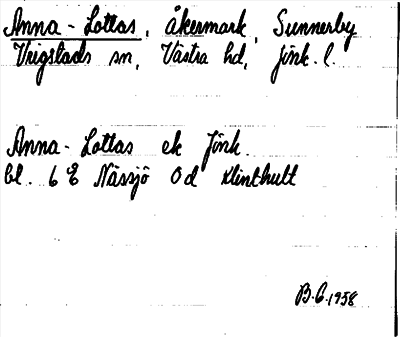 Anna-Lottas, åkermark, Sunnerby
Vrigstads sn, Västra hd, Jönk. l.
Anna-Lottas ek Jönk.
bl. 6 E Nässjö Od Klinthult
B.G. 1958